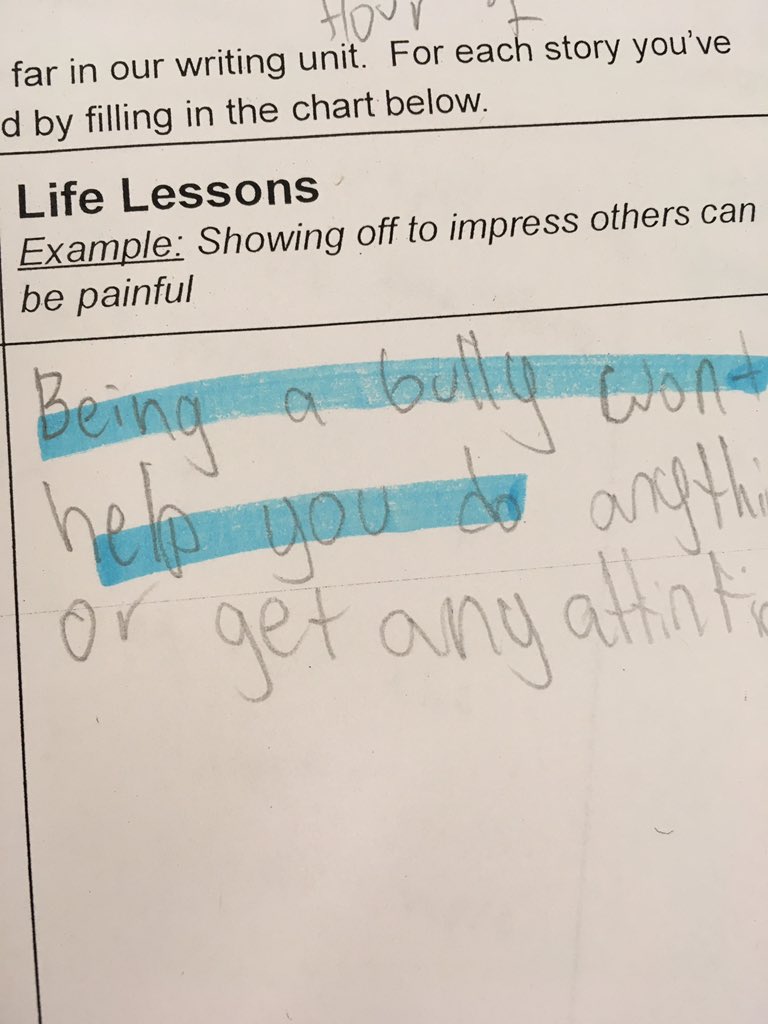 Hour
far in our writing unit. For each story you've
d by filling in the chart below.
Life Lessons
Example: Showing off to impress others can
be painful
Being a bully wont
help you do anythi
or get any attintio